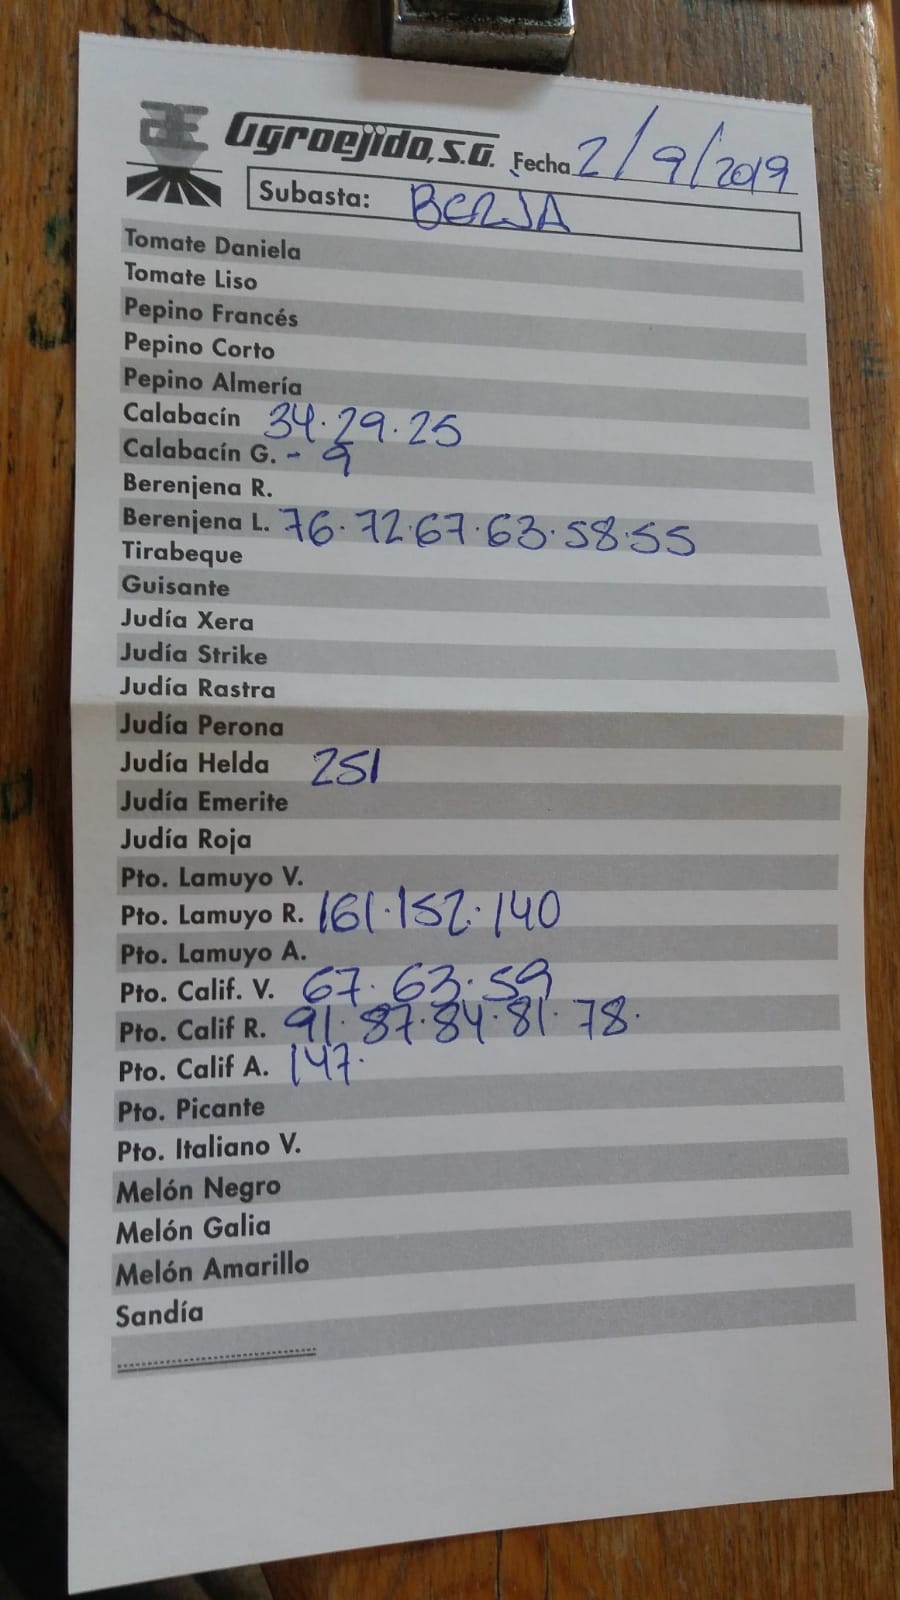 Agroejido, S.A. Fecha 2/9/2019
Subasta: BERJA
Tomate Daniela
Tomate Liso
Pepino Francés
Pepino Corto
Pepino Almería
Calabacín 34.29.25
Calabacín G. - 9
Berenjena R.
Berenjena L. 76.72.67.63.58.55
Tirabeque
Guisante
Judía Xera
Judía Strike
Judía Rastra
Judía Perona
Judía Helda 251
Judía Emerite
Judía Roja
Pto. Lamuyo V.
Pto. Lamuyo R. 161.152.140
Pto. Lamuyo A.
Pto. Calif. V. 67.63.59
Pto. Calif R. 91.87.84.81.78.
Pto. Calif A. 147.
Pto. Picante
Pto. Italiano V.
Melón Negro
Melón Galia
Melón Amarillo
Sandía